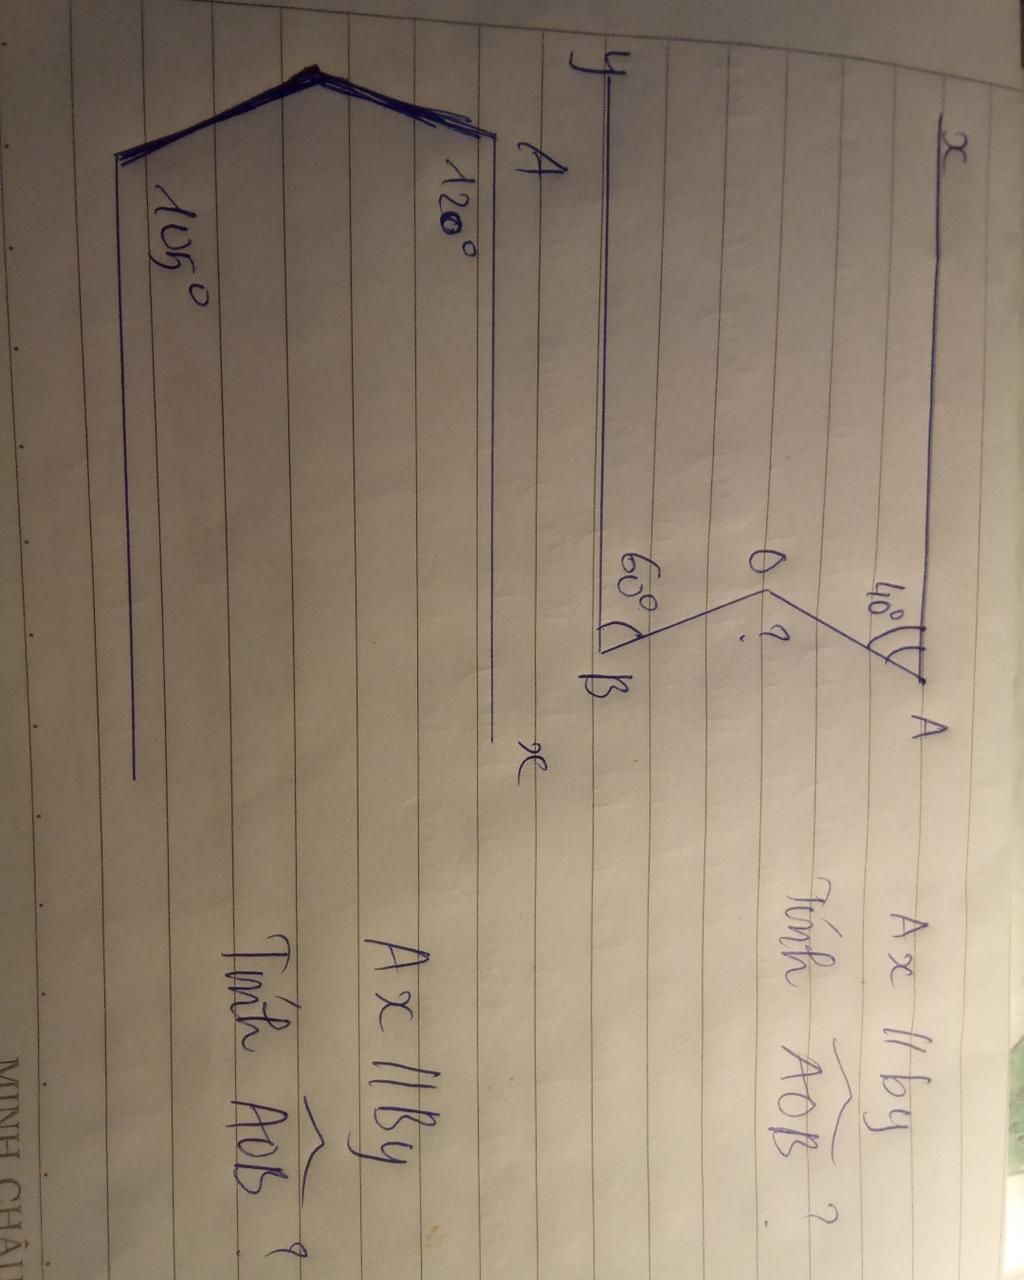 x
A
40°
O
?
60°
y
B
Ax // by
Tính AOB ?
A
x
120°
105°
Ax // By
Tính AOB ?
MINH CHÂU